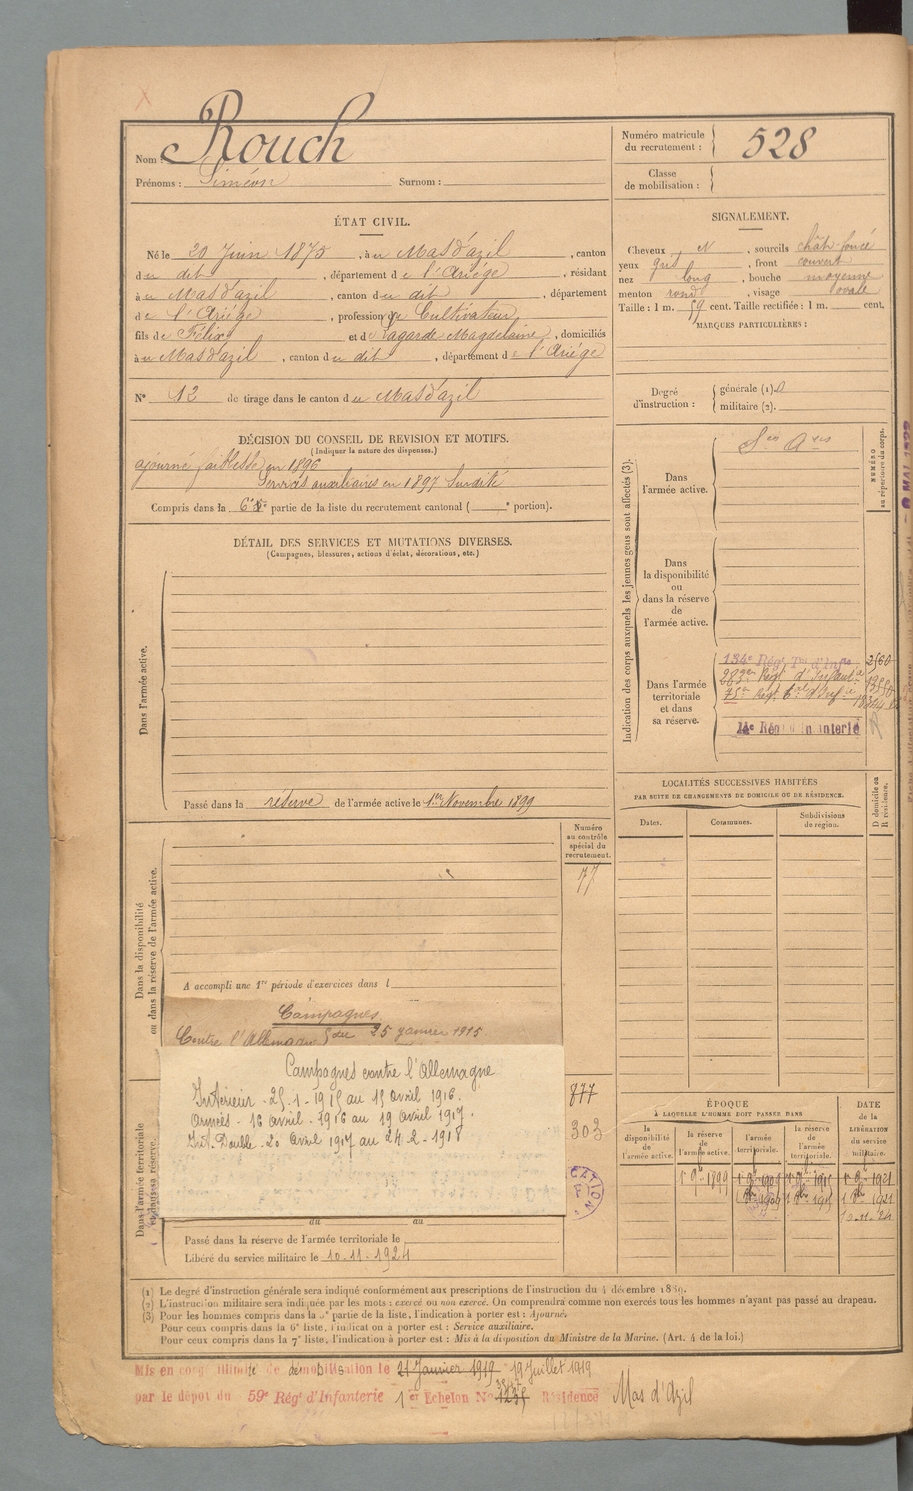 Nom : Rouch
Prénoms : Siméon Surnom :
Numéro matricule du recrutement : 528
Classe de mobilisation :
ÉTAT CIVIL.
Né le 20 Juin 1875, à u Mas d'azil, canton
du dit, département de l'Ariége, résidant
à u Mas d'azil, canton du dit, département
de l'Ariége, profession de Cultivateur
fils de Félix et de Lagarde Magdelaine, domiciliés
à u Mas d'azil, canton du dit, département de l'Ariége
N° 12 de tirage dans le canton du Mas d'azil
SIGNALEMENT.
Cheveux N, sourcils chât. foncé
yeux gris, front couvert
nez long, bouche moyenne
menton rond, visage ovale
Taille : 1 m. 59 cent. Taille rectifiée : 1 m. cent.
MARQUES PARTICULIÈRES :
Degré d'instruction : générale (1). 0
militaire (2).
DÉCISION DU CONSEIL DE REVISION ET MOTIFS.
(Indiquer la nature des dispenses.)
ajourné faiblesse en 1896
Services auxiliaires en 1897 Surdité
Compris dans la 6e partie de la liste du recrutement cantonal ( e portion).
DÉTAIL DES SERVICES ET MUTATIONS DIVERSES.
(Campagnes, blessures, actions d'éclat, décorations, etc.)
Dans l'armée active.
Passé dans la réserve de l'armée active le 1er Novembre 1899
Indication des corps auxquels les jeunes gens sont affectés (3).
NUMÉRO au répertoire du corps.
Dans l'armée active.
Ses Ares
Dans la disponibilité ou dans la réserve de l'armée active.
Dans l'armée territoriale et dans sa réserve.
134e Régt Tal d'Infie 2560
283e Régt d'Infanterie
75e Régt d'Infie
14e Rég d'Infanterie
LOCALITÉS SUCCESSIVES HABITÉES
PAR SUITE DE CHANGEMENTS DE DOMICILE OU DE RÉSIDENCE.
D domicile ou R résidence.
Dates. Communes. Subdivisions de région.
Dans la disponibilité ou dans la réserve de l'armée active.
Numéro au contrôle spécial du recrutement.
77
A accompli une 1re période d'exercices dans l
Campagnes
Contre l'Allemagne du 25 janvier 1915
Campagnes contre l'Allemagne
Intérieur - 25-1-1915 au 15 avril 1916.
Armées - 16 avril - 1916 au 19 avril 1917.
Int. Double - 20 avril 1917 au 24-2-1918
877
303
Dans l'armée territoriale et dans sa réserve.
au au
Passé dans la réserve de l'armée territoriale le
Libéré du service militaire le 10-11-1924
ÉPOQUE
À LAQUELLE L'HOMME DOIT PASSER DANS
la disponibilité de l'armée active. la réserve de l'armée active. l'armée territoriale. la réserve de l'armée territoriale.
DATE de la LIBÉRATION du service militaire.
1 9b 1899 1 9b 1909 1 9b 1915 1 9b 1921
10-11-24
(1) Le degré d'instruction générale sera indiqué conformément aux prescriptions de l'instruction du 4 décembre 1889.
(2) L'instruction militaire sera indiquée par les mots : exercé ou non exercé. On comprendra comme non exercés tous les hommes n'ayant pas passé au drapeau.
(3) Pour les hommes compris dans la 5e partie de la liste, l'indication à porter est : Ajourné.
Pour ceux compris dans la 6e liste, l'indication à porter est : Service auxiliaire.
Pour ceux compris dans la 7e liste, l'indication à porter est : Mis à la disposition du Ministre de la Marine. (Art. 4 de la loi.)
Mis en congé illimité de démobilisation le 21 Janvier 1919 19 Juillet 1919
par le dépôt du 59e Régt d'Infanterie 1er Echelon N° Résidence Mas d'Azil